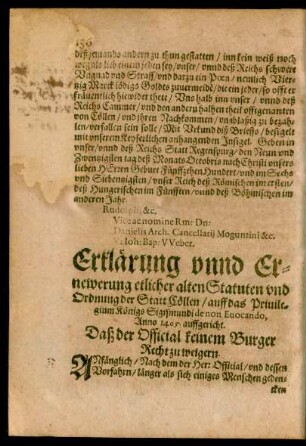 136
deß jemandts andern zu thun gestatten / inn kein weiß noch
wegnß lieb einem jeden sey / vnser / vnnd deß Reichs schwere
Vngnad vnd Straff / vnd darzu ein Poen / nemlich Vier-
zig Marck lödigs Goldts zuuermeidē / die ein jeder / so offt er
fräuenlich hiewider thete / Vns halb inn vnser / vnnd deß
Reichs Cammer / vnd den andern halben theil offtgenanten
von Cöllen / vnd jhren Nachkommen / vnabläßig zu bezah-
len / verfallen sein solle / Mit Vrkund diß Brieffs / besigelt
mit vnserem Keyserlichen anhangenden Insigel. Geben in
vnser / vnnd deß Reichs Statt Regenspurg / den Neun vnd
Zwenzigsten tag deß Monats Octobris nach Christi vnsers
lieben HErren Geburt Fünffzehen Hundert / vnd im Sechs
vnd Siebenzigsten / vnser Reich deß Römischen im ersten /
deß Hungerischen im Fünfften / vnnd deß Böhmischen im
anderen Jahr
Rudolph, &c.
Vice ac nomine Rmi Dn:
Danielis Arch. Cancellarij Moguntini &c.
Vt Ioh: Bap: VVeber.
Erklärung vnnd Er-
newerung etlicher alten Statuten vnd
Ordnung der Statt Cöllen / auff das Priuile-
gium Königs Sigismundi de non Euocando,
Anno 1405. auffgericht.
Daß der Official keinem Burger
Recht zu weigern.
37 ANfänglich / Nach dem der Herr Official / vnd dessen
Vorfahrn / länger als sich einiges Menschen geden-
cken